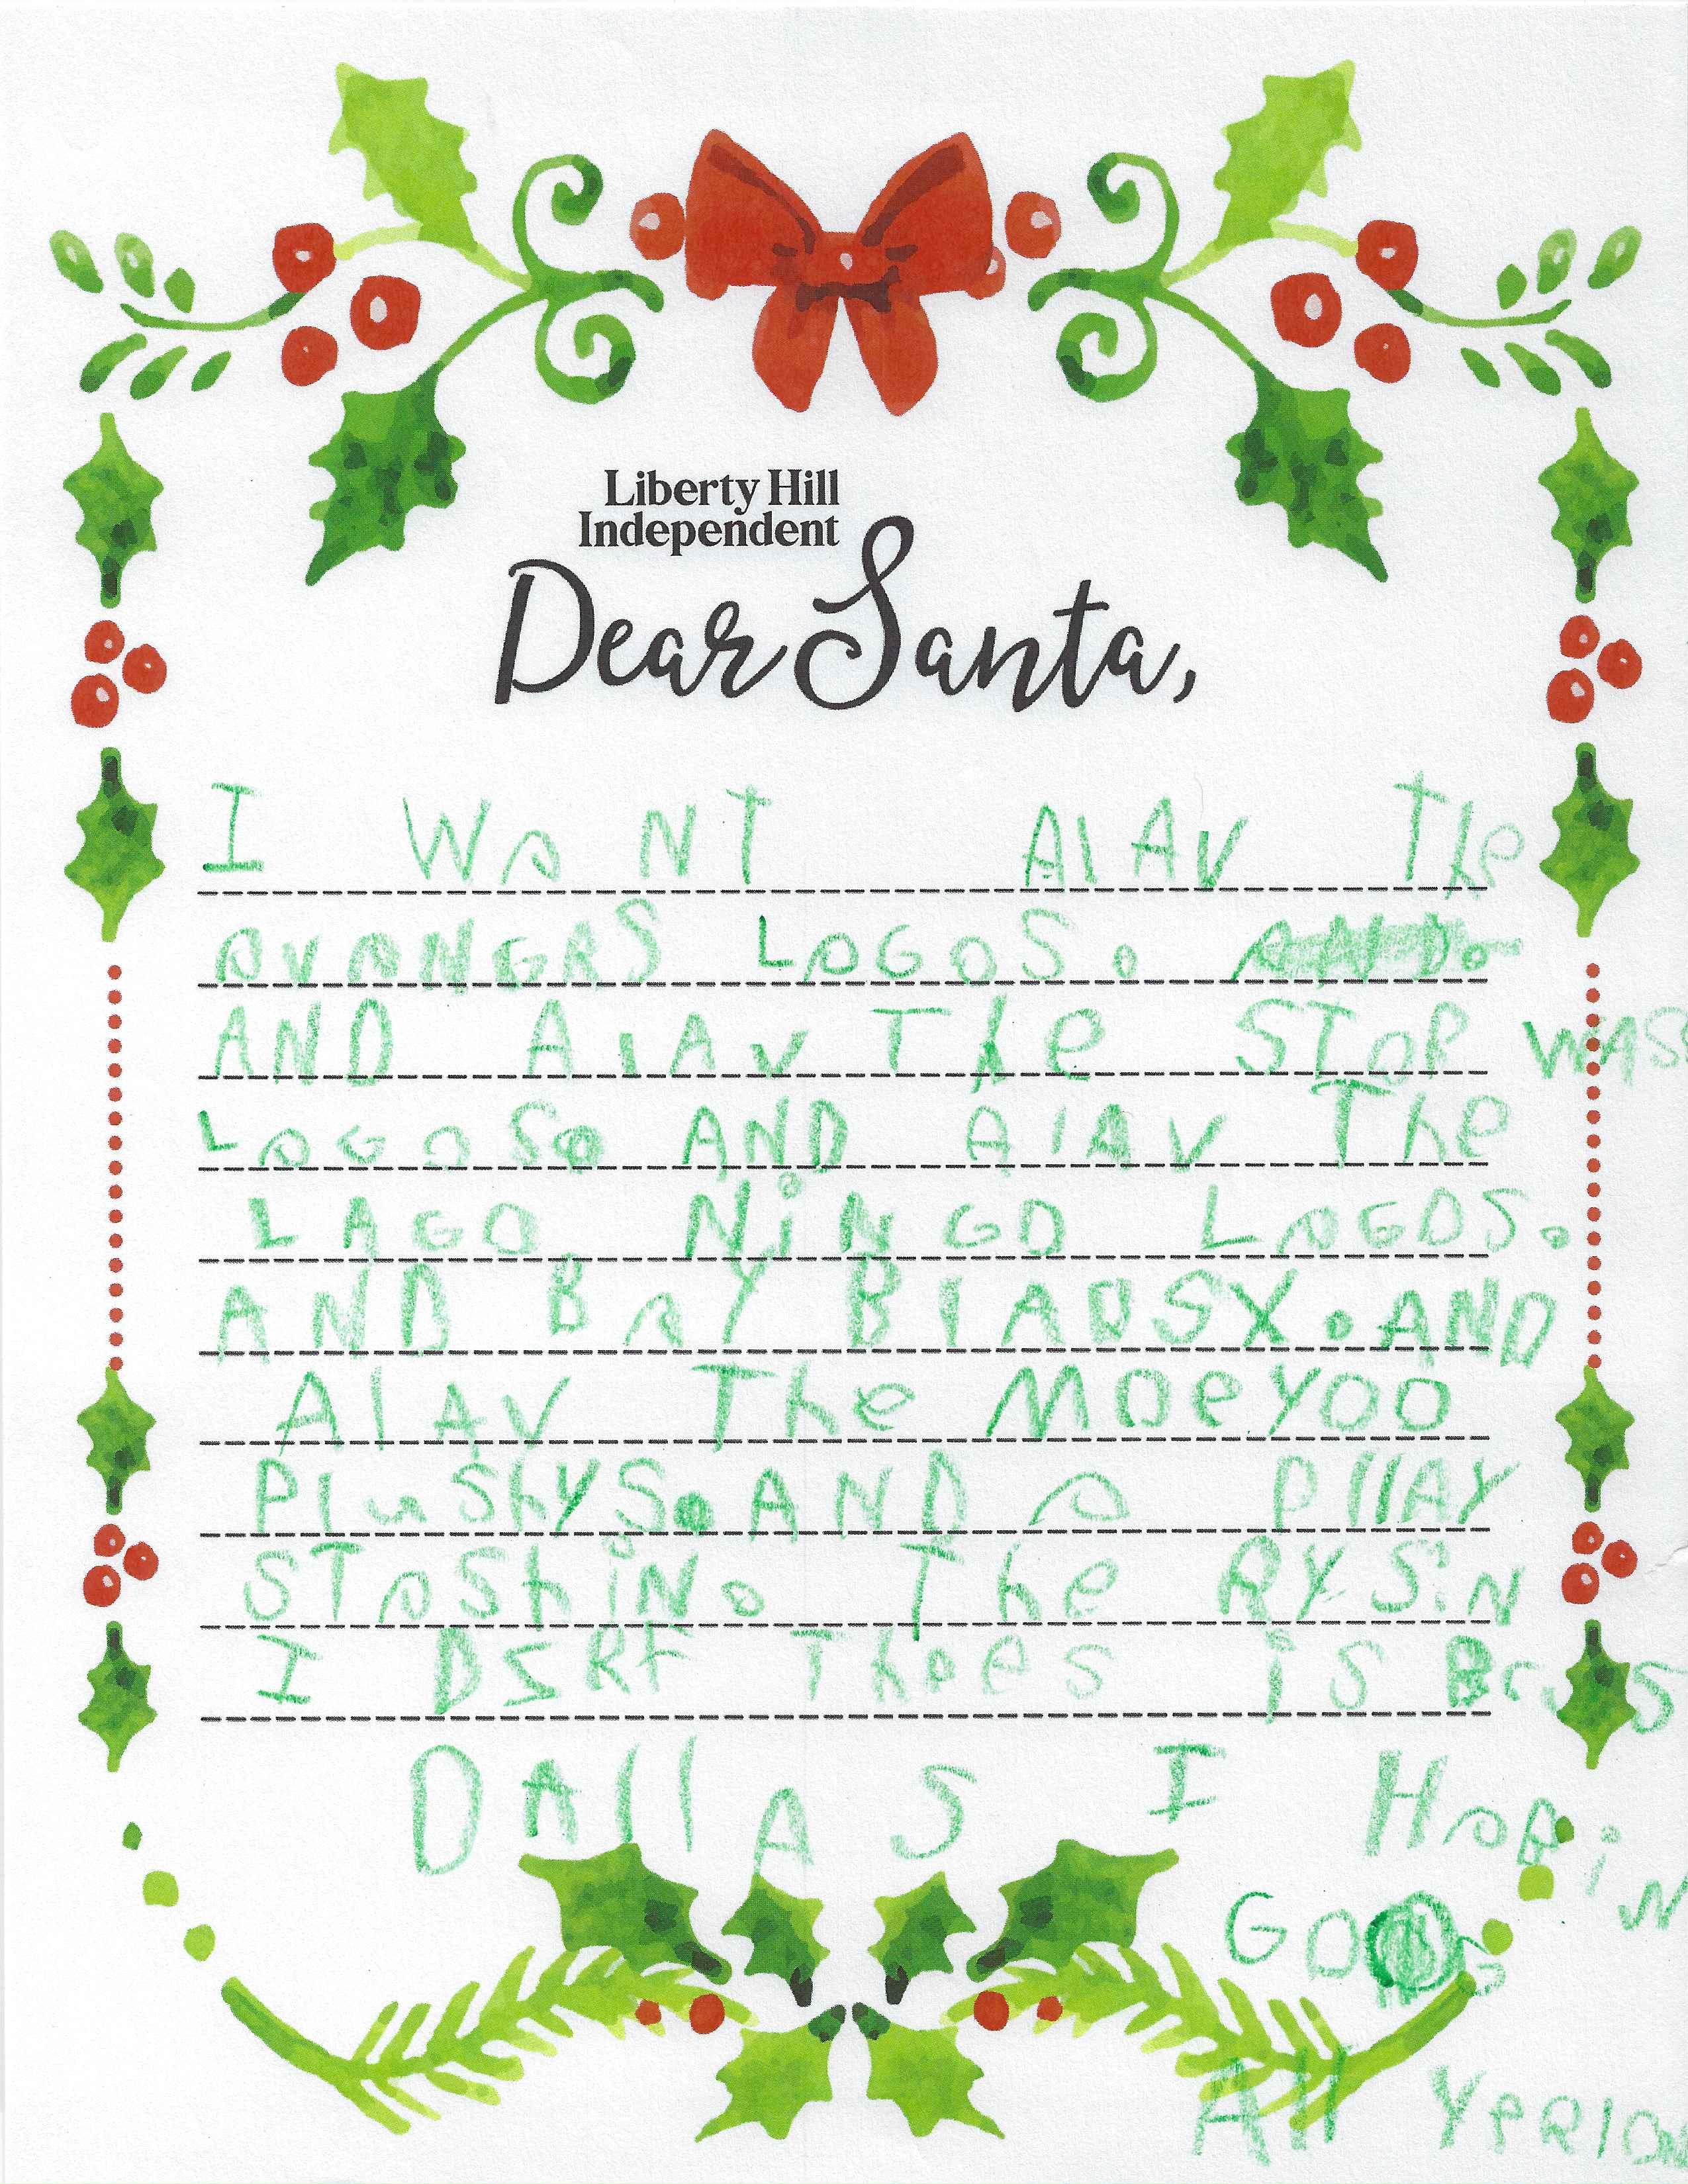 Liberty Hill
Independent
Dear Santa,
I WaNT AlAV The
avaNGRS LOGOS.
AND AlAV The STOR WAS
LOGOS. AND AlAV The
LAGO NiNGO LOGOS.
AND BaY BlADSX. AND
AlAV The MOeYOO
PluShYS. AND a PllAY
STaShiN. The RYSiN
I DSRF ThOeS iS
DAllAS I HaPiN
GOOD
All YeRlON